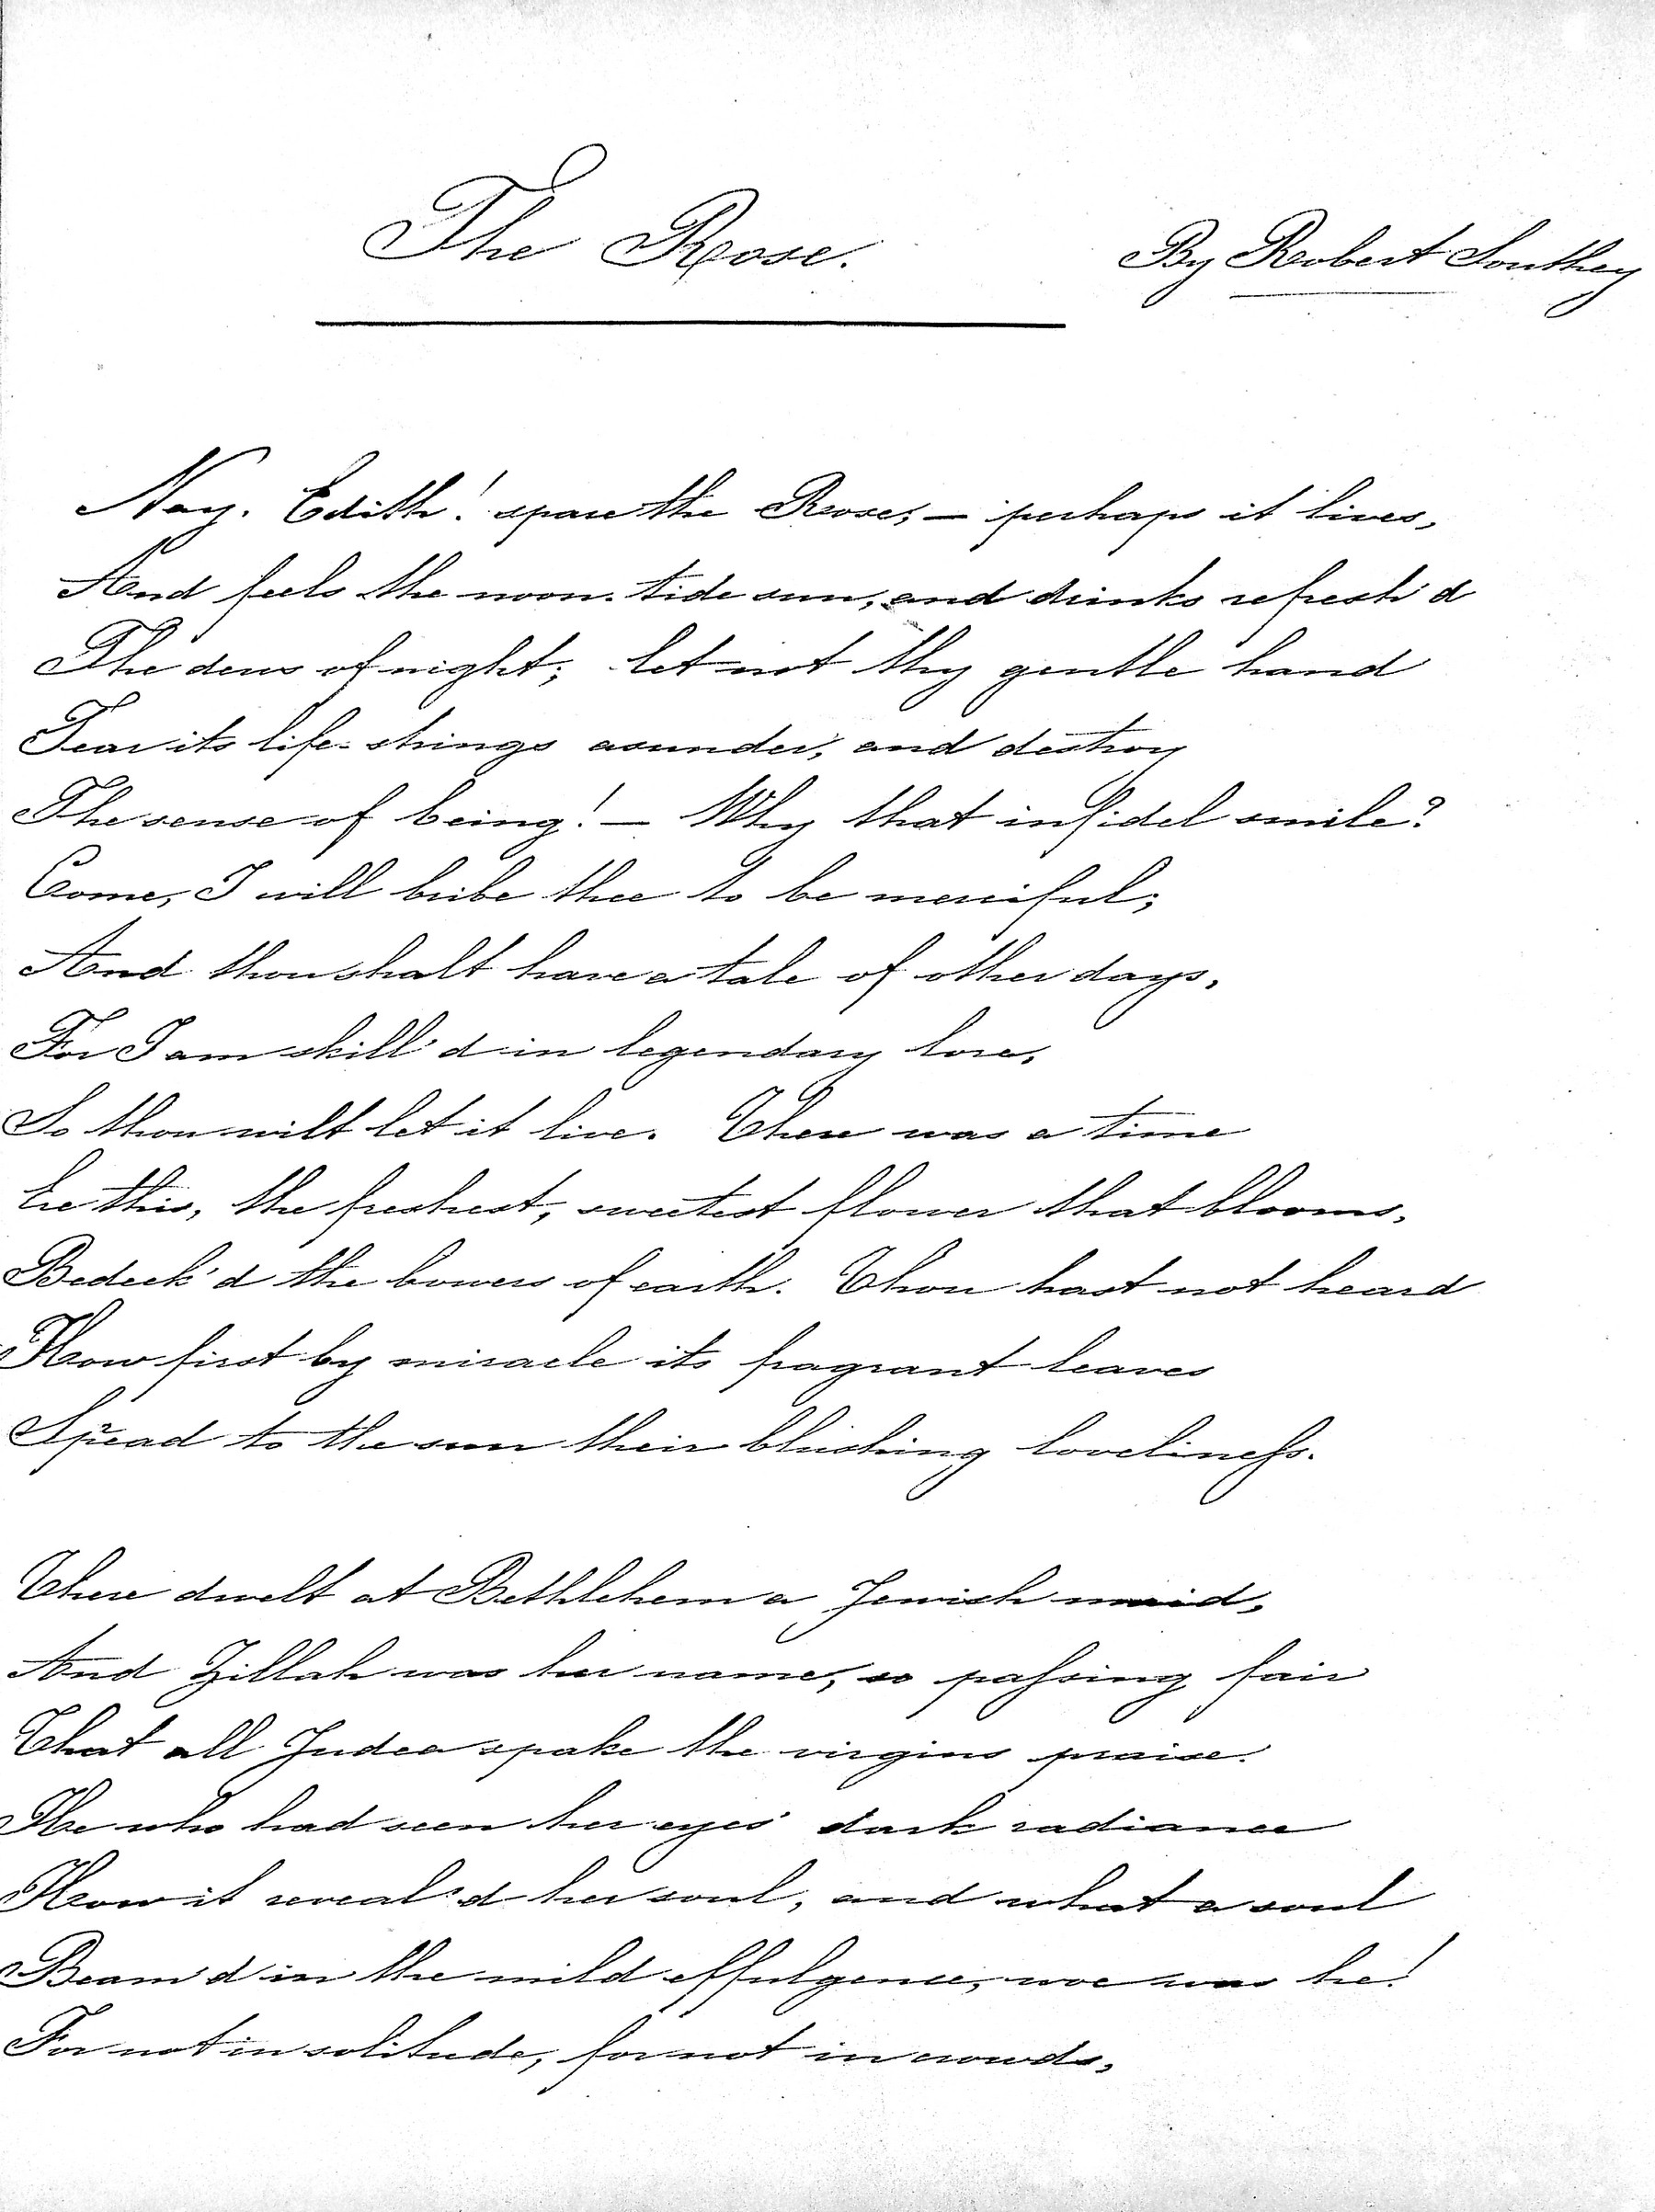 The Rose.
By Robert Southey
Nay. Edith! spare the Rose; — perhaps it lives,
And feels the noon-tide sun, and drinks refresh'd
The dews of night; let not thy gentle hand
Tear its life-strings asunder, and destroy
The sense of being! — Why that infidel smile?
Come, I will bribe thee to be merciful;
And thou shalt have a tale of other days,
For I am skill'd in legendary lore,
So thou wilt let it live. There was a time
Ere this, the freshest, sweetest flower that blooms,
Bedeck'd the bowers of earth. Thou hast not heard
How first by miracle its fragrant leaves
Spread to the sun their blushing lovelineſs.
There dwelt at Bethlehem a Jewish maid,
And Zillah was her name, so paſsing fair
That all Judea spake the virgins praise.
He who had seen her eyes' dark radiance
How it reveal'd her soul, and what a soul
Beam'd in the mild effulgence, woe was he!
For not in solitude, for not in crowds,